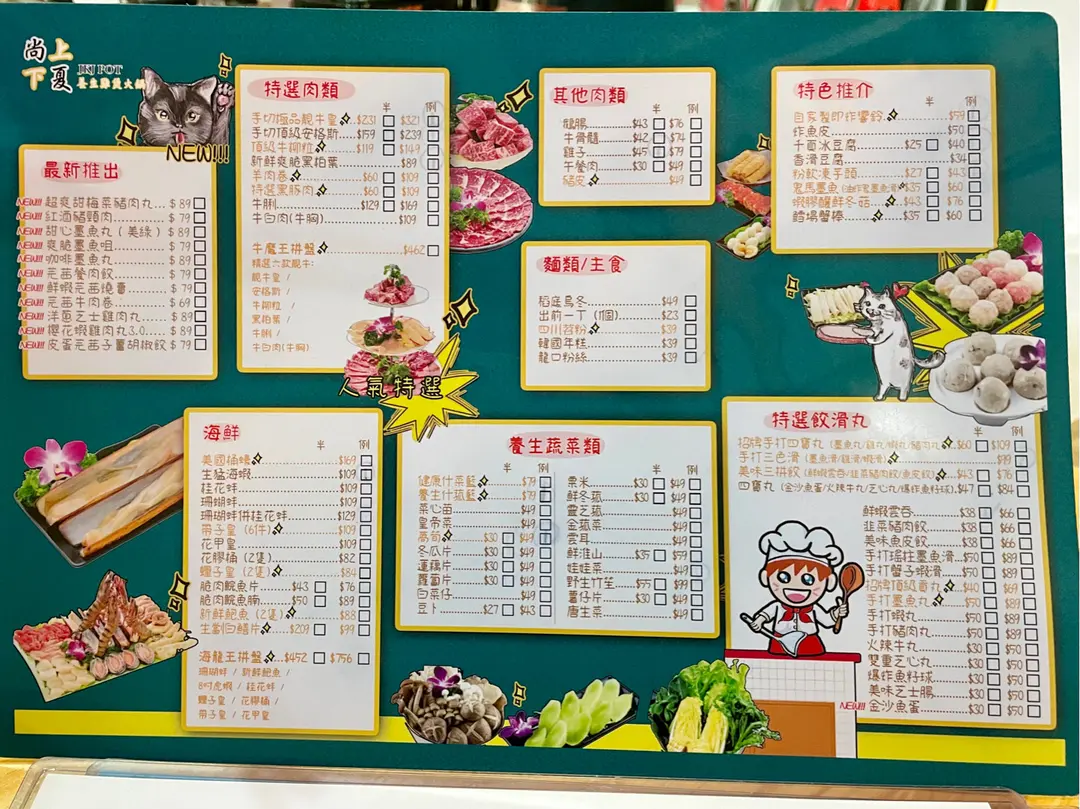 尚上
下夏
JKJ POT
養生雞煲火鍋
NEW!!!
最新推出
NEW!!! 超爽甜梅菜豬肉丸...$89
NEW!!! 紅酒豬頸肉...$79
NEW!!! 甜心墨魚丸(美綠)...$89
NEW!!! 爽脆墨魚咀...$79
NEW!!! 咖喱墨魚丸...$89
NEW!!! 芫茜鯪肉餃...$79
NEW!!! 鮮蝦芫茜燒賣...$79
NEW!!! 芫茜牛肉卷...$69
NEW!!! 洋蔥芝士雞肉丸...$89
NEW!!! 櫻花蝦雞肉丸3.0...$89
NEW!!! 皮蛋芫茜子薑胡椒餃$79
特選肉類
半 例
手切極品靚牛皇 $231 $321
手切頂級安格斯...$159 $239
頂級牛柳粒 $119 $149
新鮮爽脆黑柏葉...$89
羊肉卷 $60 $109
特選黑豚肉 $60 $109
牛脷...$129 $169
牛白肉(牛胸)...$109
牛魔王拼盤 $462
精選六款靚牛:
靚牛皇 /
安格斯 /
牛柳粒 /
黑柏葉 /
牛脷 /
牛白肉(牛胸)
人氣特選
其他肉類
半 例
$43 $76
牛骨髓...$42 $74
雞子...$45 $79
午餐肉...$30 $49
豬皮 $49
麵類/主食
稻庭烏冬...$49
出前一丁(1個)...$23
四川苕粉 $39
韓國年糕...$39
龍口粉絲...$39
特色推介
半 例
自家製即炸響鈴 $59
炸魚皮...$50
千頁冰豆腐...$25 $40
香滑豆腐...$34
$27 $43
鬼馬墨魚 $35 $60
蝦膠釀鮮冬菇 $43 $76
鱈場蟹棒 $35 $60
海鮮
半 例
美國桶蠔 $169
生猛海蝦...$109
桂花蚌...$109
珊瑚蚌...$109
珊瑚蚌併桂花蚌...$129
帶子皇(6件) $109
花甲皇...$109
花膠桶(2隻)...$82
鱷子皇(2隻) $84
脆肉鯇魚片...$43 $76
脆肉鯇魚腩...$50 $89
新鮮鮑魚(2隻) $88
生劏白鱔片 $209 $99
海龍王拼盤 $452 $756
珊瑚蚌 / 新鮮鮑魚 /
8吋虎蝦 / 桂花蚌 /
鱷子皇 / 花膠桶 /
帶子皇 / 花甲皇
養生蔬菜類
半 例
健康什菜籃 $79
養生什菰籃 $79
菜心苗...$49
皇帝菜...$49
茼筍 $30 $49
冬瓜片...$30 $49
蓮藕片...$30 $49
蘿蔔片...$30 $49
白菜仔...$49
豆卜...$27 $43
半 例
粟米...$30 $49
鮮冬菰...$30 $49
靈芝菰...$49
金菰菜...$49
雲耳...$49
鮮淮山...$35 $59
娃娃菜...$49
野生竹笙...$55 $99
薯仔片...$30 $49
唐生菜...$49
特選餃滑丸
半 例
招牌手打四寶丸(墨魚丸/雞丸/蝦丸/豬肉丸) $60 $109
手打三色滑(墨魚滑/雞滑/蝦滑) $119
美味三拼餃(鮮蝦雲吞/韭菜豬肉餃/魚皮餃) $43 $76
四寶丸(金沙魚蛋/火辣牛丸/芝心丸/爆炸魚籽球) $47 $84
鮮蝦雲吞...$38 $66
韭菜豬肉餃...$38 $66
美味魚皮餃...$38 $66
手打瑤柱墨魚滑...$50 $89
手打蟹子蝦滑...$50 $89
招牌頂級貢丸 $40 $69
手打墨魚丸 $50 $89
手打蝦丸...$50 $89
手打豬肉丸...$50 $89
火辣牛丸...$30 $50
雙重芝心丸...$30 $50
爆炸魚籽球...$30 $50
美味芝士腸...$30 $50
NEW!!! 金沙魚蛋...$30 $50